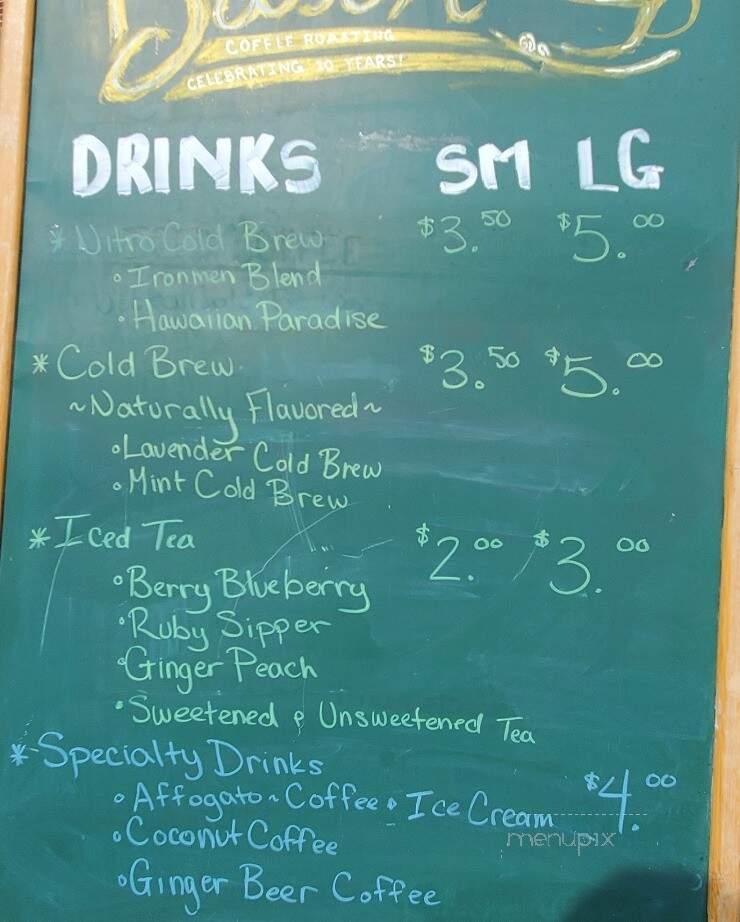 COFFEE ROASTING
CELEBRATING 10 YEARS!
DRINKS SM LG
* Nitro Cold Brew $3.50 $5.00
• Ironmen Blend
• Hawaiian Paradise
* Cold Brew $3.50 $5.00
~Naturally Flavored~
• Lavender Cold Brew
• Mint Cold Brew
* Iced Tea $2.00 $3.00
• Berry Blueberry
• Ruby Sipper
• Ginger Peach
• Sweetened & Unsweetened Tea
* Specialty Drinks $4.00
• Affogato ~ Coffee & Ice Cream
menupix
• Coconut Coffee
• Ginger Beer Coffee